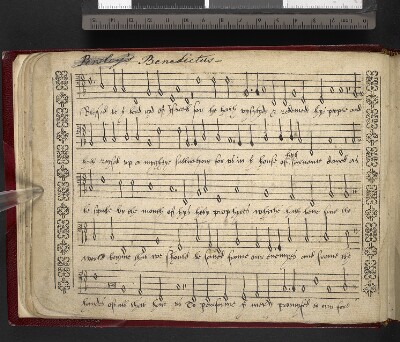 Benedictus
Blessed be the lord god of Israel for he hath visited & redemed hys people and
hath raised up a mightie salvation for us in the house of his servaunte david as
he spake by the mouth of hys holy prophetes whiche hath bene sins the
world began that we should be saved frome our enemyes and frome the
handes of all that hate us To performe the mercy promised to our fore